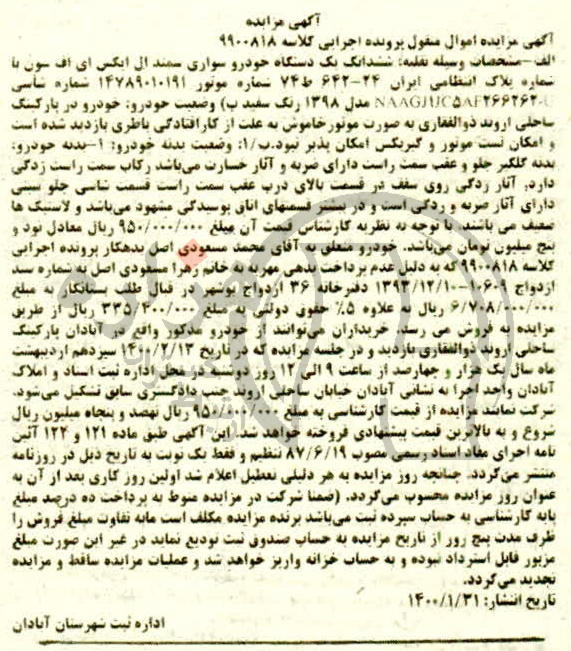 آگهی مزایده
آگهی مزایده اموال منقول پرونده اجرایی کلاسه ۹۹۰۰۸۱۸
الف-مشخصات وسیله نقلیه: ششدانگ یک دستگاه خودرو سواری سمند ال ایکس ای اف سون با
شماره پلاک انتظامی ایران ۲۴-۶۴۲ ط۷۴ شماره موتور ۱۴۷۸۹۰۱۰۱۹۱ شماره شاسی
مدل ۱۳۹۸ رنگ سفید ب) وضعیت خودرو: خودرو در پارکینگ
ساحلی اروند ذوالفقاری به صورت موتورخاموش به علت از کارافتادگی باطری بازدید شده است
و امکان تست موتور و گیربکس امکان پذیر نبود.ب/۱: وضعیت بدنه خودرو: ۱-بدنه خودرو:
بدنه گلگیر جلو و عقب سمت راست دارای ضربه و آثار خسارت می‌باشد رکاب سمت راست زدگی
دارد. آثار زدگی روی سقف در قسمت بالای درب عقب سمت راست قسمت شاسی جلو سینی
دارای آثار ضربه و زدگی است و در بیشتر قسمتهای اتاق پوسیدگی مشهود می‌باشد و لاستیک ها
ضعیف می باشند. با توجه به نظریه کارشناس قیمت آن مبلغ ۹۵۰/۰۰۰/۰۰۰ ریال معادل نود و
پنج میلیون تومان می‌باشد. خودرو متعلق به آقای محمد مسعودی اصل بدهکار پرونده اجرایی
کلاسه ۹۹۰۰۸۱۸ که به دلیل عدم پرداخت بدهی مهریه به خانم زهرا مسعودی اصل به شماره سند
ازدواج ۱۰۶۰۹-۱۳۹۳/۱۲/۱۰ دفترخانه ۳۶ ازدواج بوشهر در قبال طلب بستانکار به مبلغ
۶/۷۰۸/۰۰۰/۰۰۰ ریال به علاوه ۵٪ حقوق دولتی به مبلغ ۳۳۵/۴۰۰/۰۰۰ ریال از طریق
مزایده به فروش می رسد. خریداران می‌توانند از خودرو مذکور واقع در آبادان پارکینگ
ساحلی اروند ذوالفقاری بازدید و در جلسه مزایده که در تاریخ ۱۴۰۰/۲/۱۳ سیزدهم اردیبهشت
ماه سال یک هزار و چهارصد از ساعت ۹ الی ۱۲ روز دوشنبه در محل اداره ثبت اسناد و املاک
آبادان واحد اجرا به نشانی آبادان خیابان ساحلی اروند جنب دادگستری سابق تشکیل می‌شود.
شرکت نمایند مزایده از قیمت کارشناسی به مبلغ ۹۵۰/۰۰۰/۰۰۰ ریال نهصد و پنجاه میلیون ریال
شروع و به بالاترین قیمت پیشنهادی فروخته خواهد شد. این آگهی طبق ماده ۱۲۱ و ۱۲۴ آئین
نامه اجرای مفاد اسناد رسمی مصوب ۸۷/۶/۱۹ تنظیم و فقط یک نوبت به تاریخ ذیل در روزنامه
منتشر می‌گردد. چنانچه روز مزایده به هر دلیلی تعطیل اعلام شد اولین روز کاری بعد از آن به
عنوان روز مزایده محسوب می‌گردد. (ضمنا شرکت در مزایده منوط به پرداخت ده درصد مبلغ
پایه کارشناسی به حساب سپرده ثبت می‌باشد برنده مزایده مکلف است مابه تفاوت مبلغ فروش را
ظرف مدت پنج روز از تاریخ مزایده به حساب صندوق ثبت تودیع نماید در غیر این صورت مبلغ
مزبور قابل استرداد نبوده و به حساب خزانه واریز خواهد شد و عملیات مزایده ساقط و مزایده
تجدید می‌گردد.
تاریخ انتشار: ۱۴۰۰/۱/۳۱
اداره ثبت شهرستان آبادان